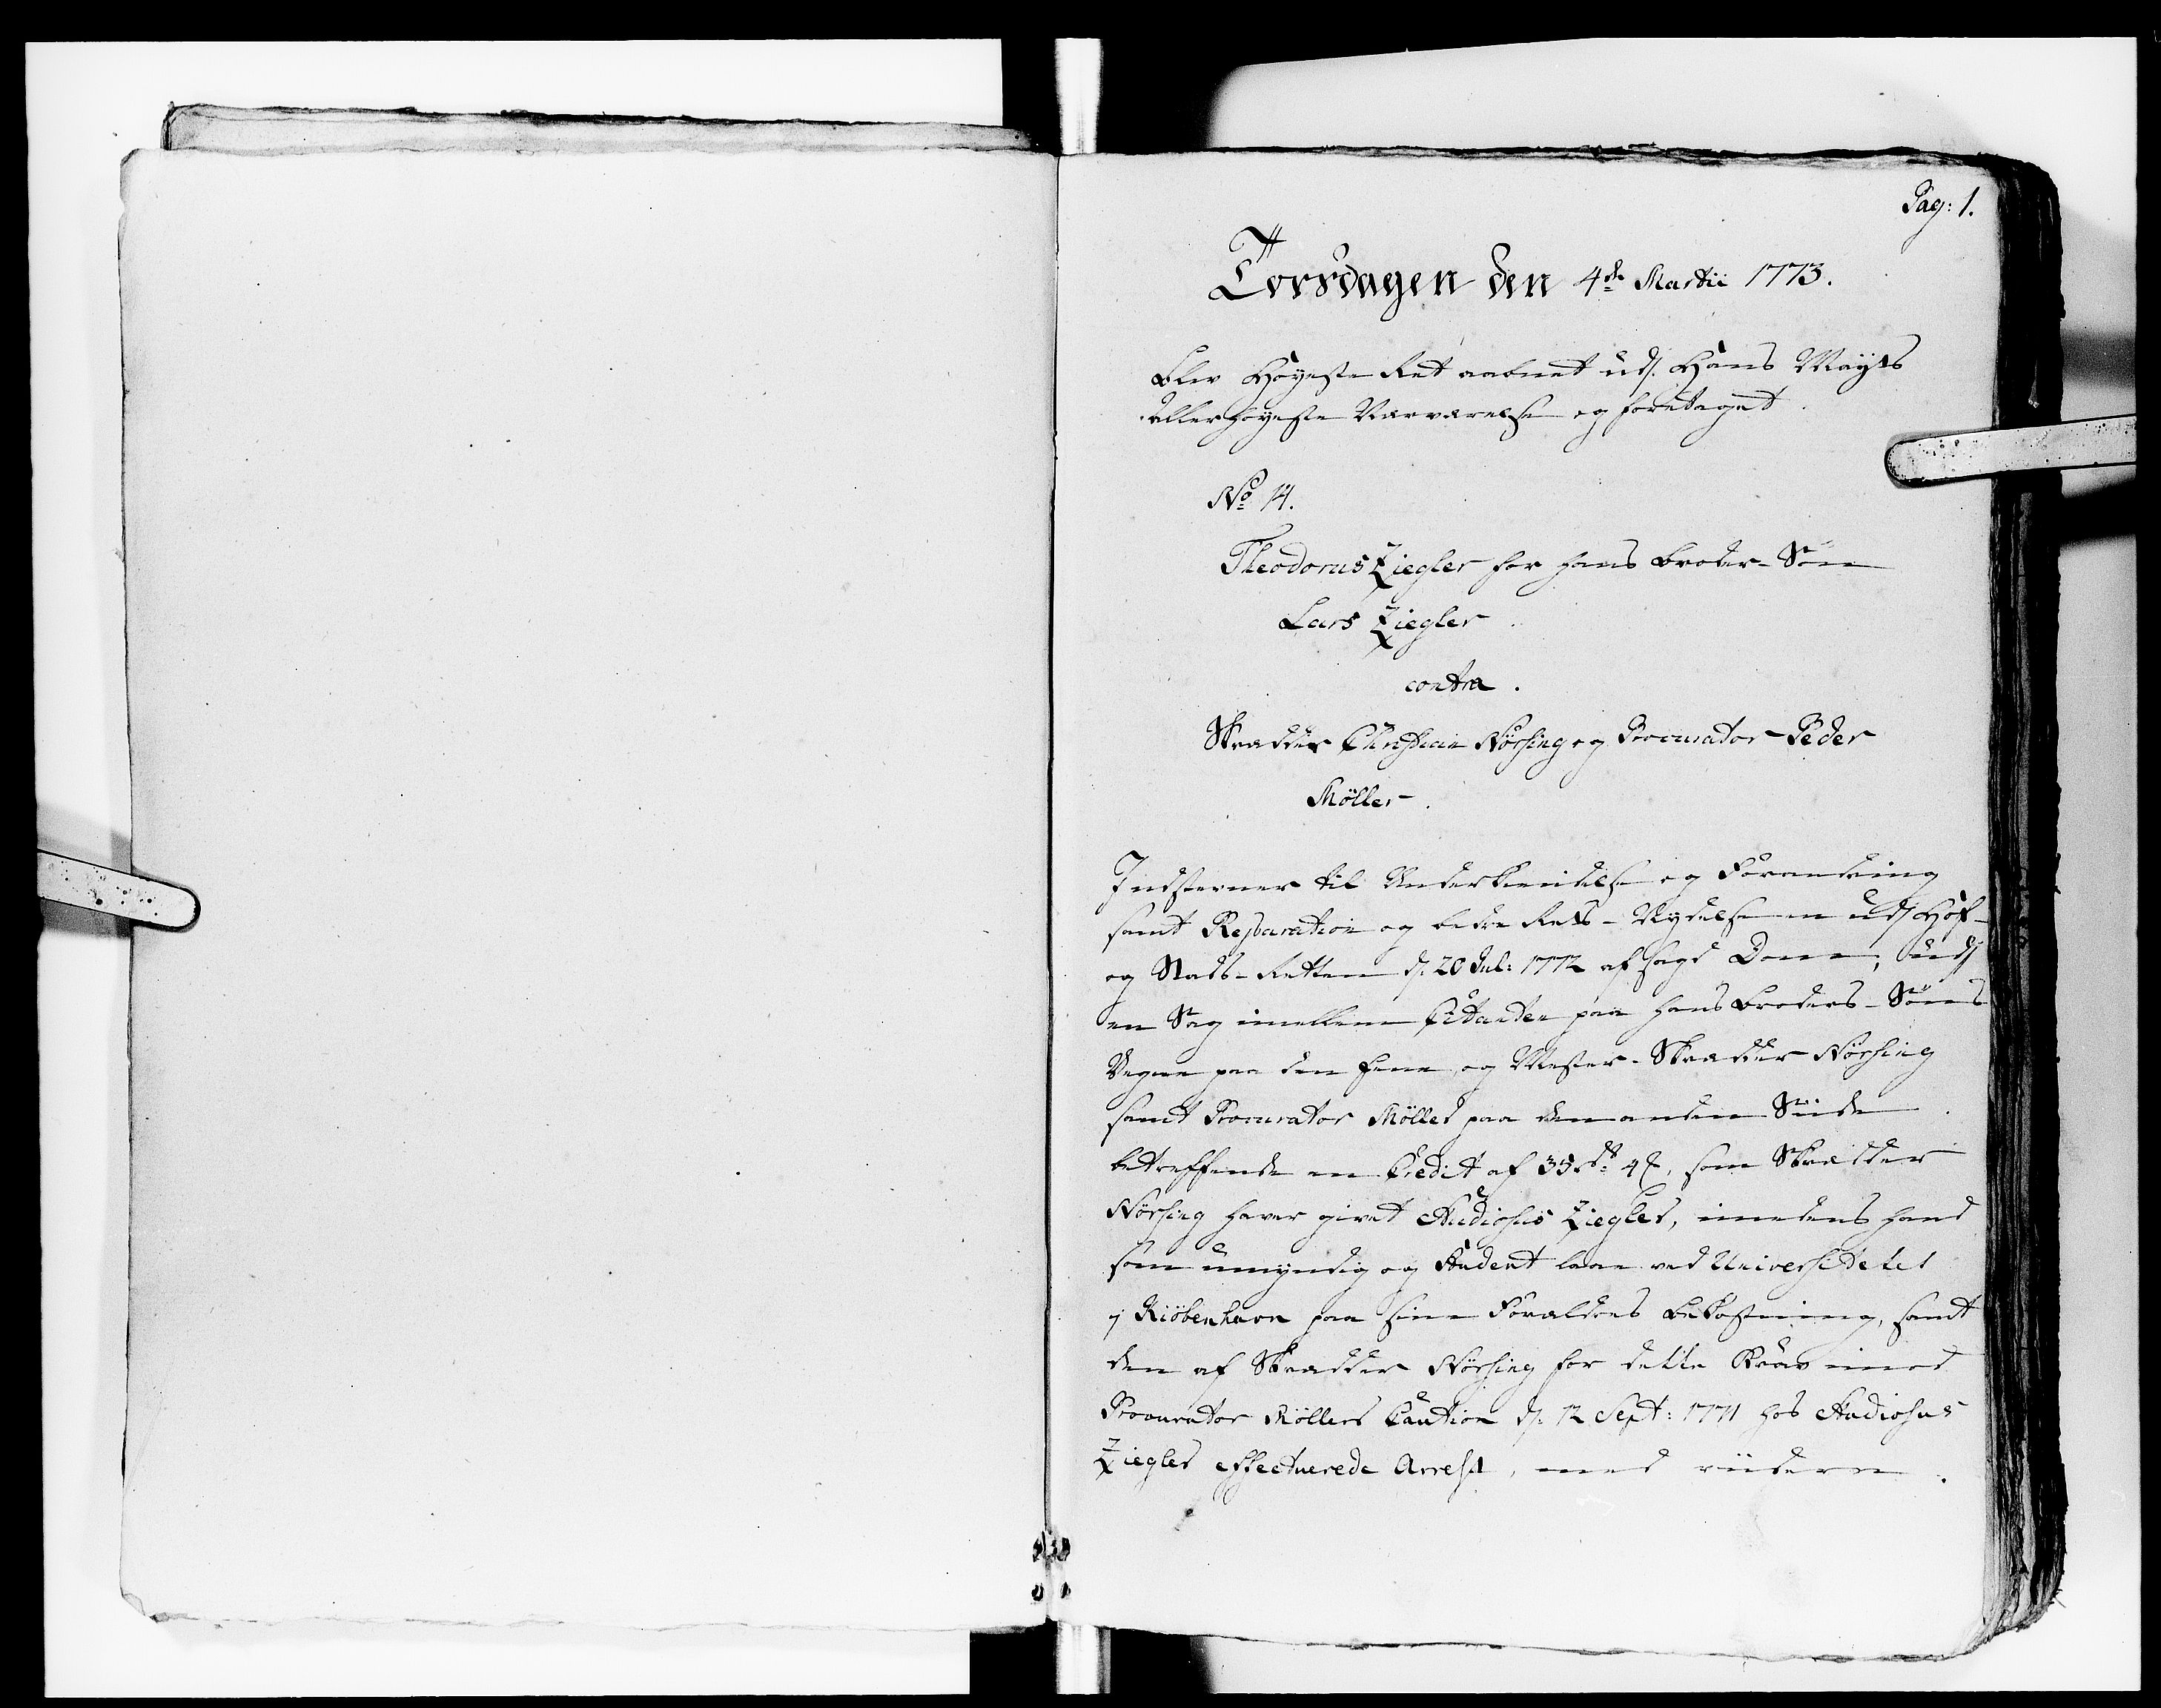 Pag: 1.
Torsdagen den 4de Martii 1773.
Blev Høyeste Ret aabnet udj Hans Mayts
Allerhøyeste Nærværelse og foretaget
No 14.
Theodorus Ziegler for hans Broder-Søn
Lars Ziegler
contra.
Skrædder Christian Nørsing og Procurator Peder
Møller.
Indstevner til Underkiendelse og Forandring
samt Reparation og bedre Rets-Nydelse en udj Hof-
og Stads-Retten d. 20 Jul: 1772 afsagd Dom, udj
en Sag imellem Citanten paa hans Broders-Søns
Vegne paa den Eene, og Mester-Skrædder Nørsing
samt Procurator Møller paa den anden Siide
betreffende en Credit af 35 rdr: 4 ß, som Skrædder
Nørsing haver givet Studiosus Ziegler, imedens hand
som umyndig og Student laae ved Universitetet
j Kiöbenhavn paa sine Forældres Bekostning, samt
den af Skrædder Nørsing for dette Krav imod
Procurator Møllers Caution d. 12 Sept: 1771 hos Studiosus
Ziegler effectuerede Arrest, med viidere.